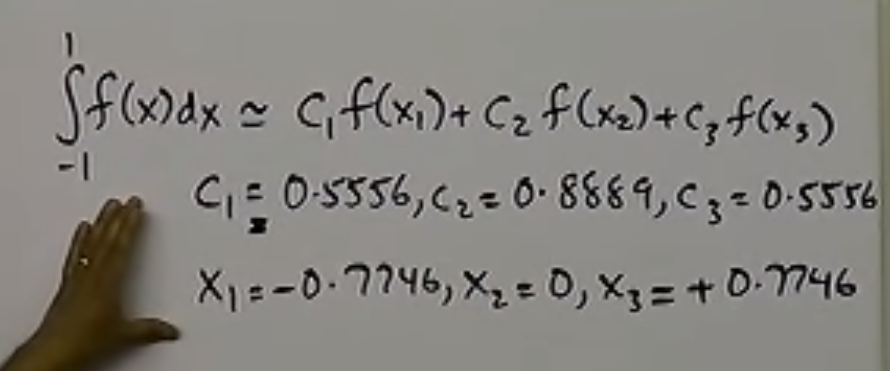 ∫_{-1}^{1} f(x)dx ≃ C₁f(x₁)+C₂f(x₂)+C₃f(x₃)
C₁=0.5556,C₂=0.8889,C₃=0.5556
x₁=-0.7746,x₂=0,x₃=+0.7746